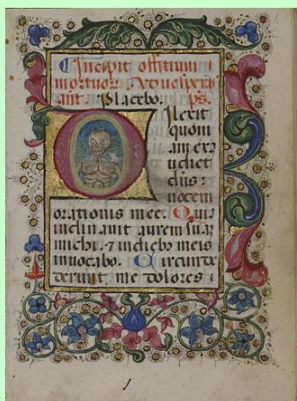 Incipit offitium
mortuor Ad uesperas
ant Placebo. ps.
Dilexit
quoni
am exa
udiet
dñs:
uocem
orationis mee. Quia
inclinauit aurem suā
michi: ⁊ in diebo meis
inuocabo. Circunde
derunt me dolores